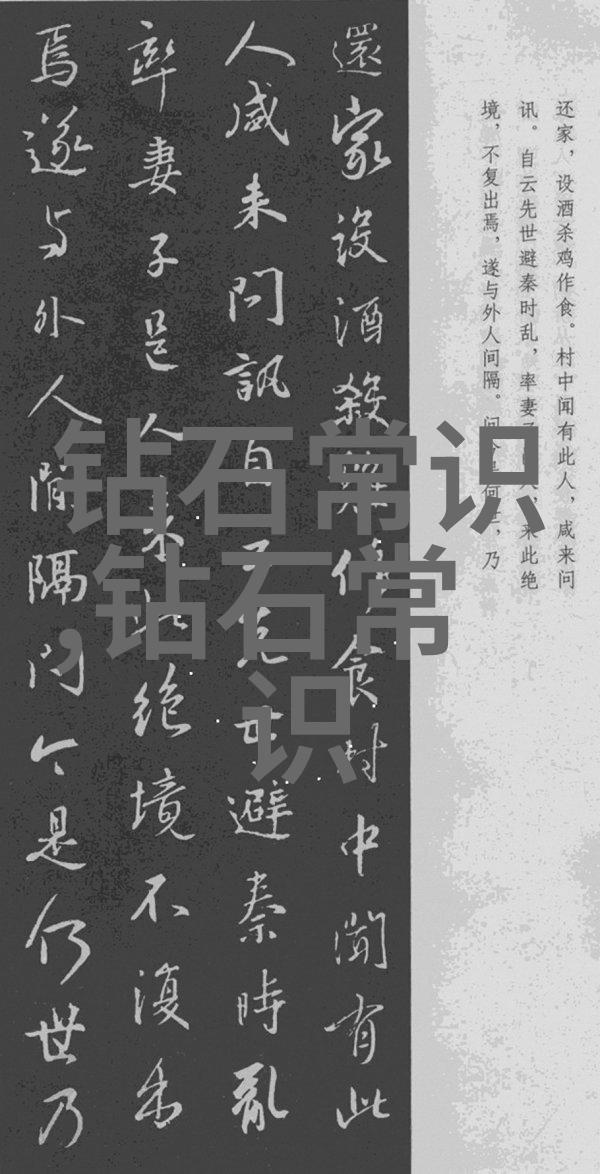 还家，设酒杀鸡作食。村中闻有此人，咸来问
讯。自云先世避秦时乱，率妻子人，来此绝
境，不复出焉，遂与外人间隔。问是何世，乃
還家設酒殺雞作食村中聞有此
人咸来問訊自云先世避秦時亂
率妻子邑人来此絶境不復出
焉遂与外人間隔问今是何世乃
钻石常识
，钻石常
识